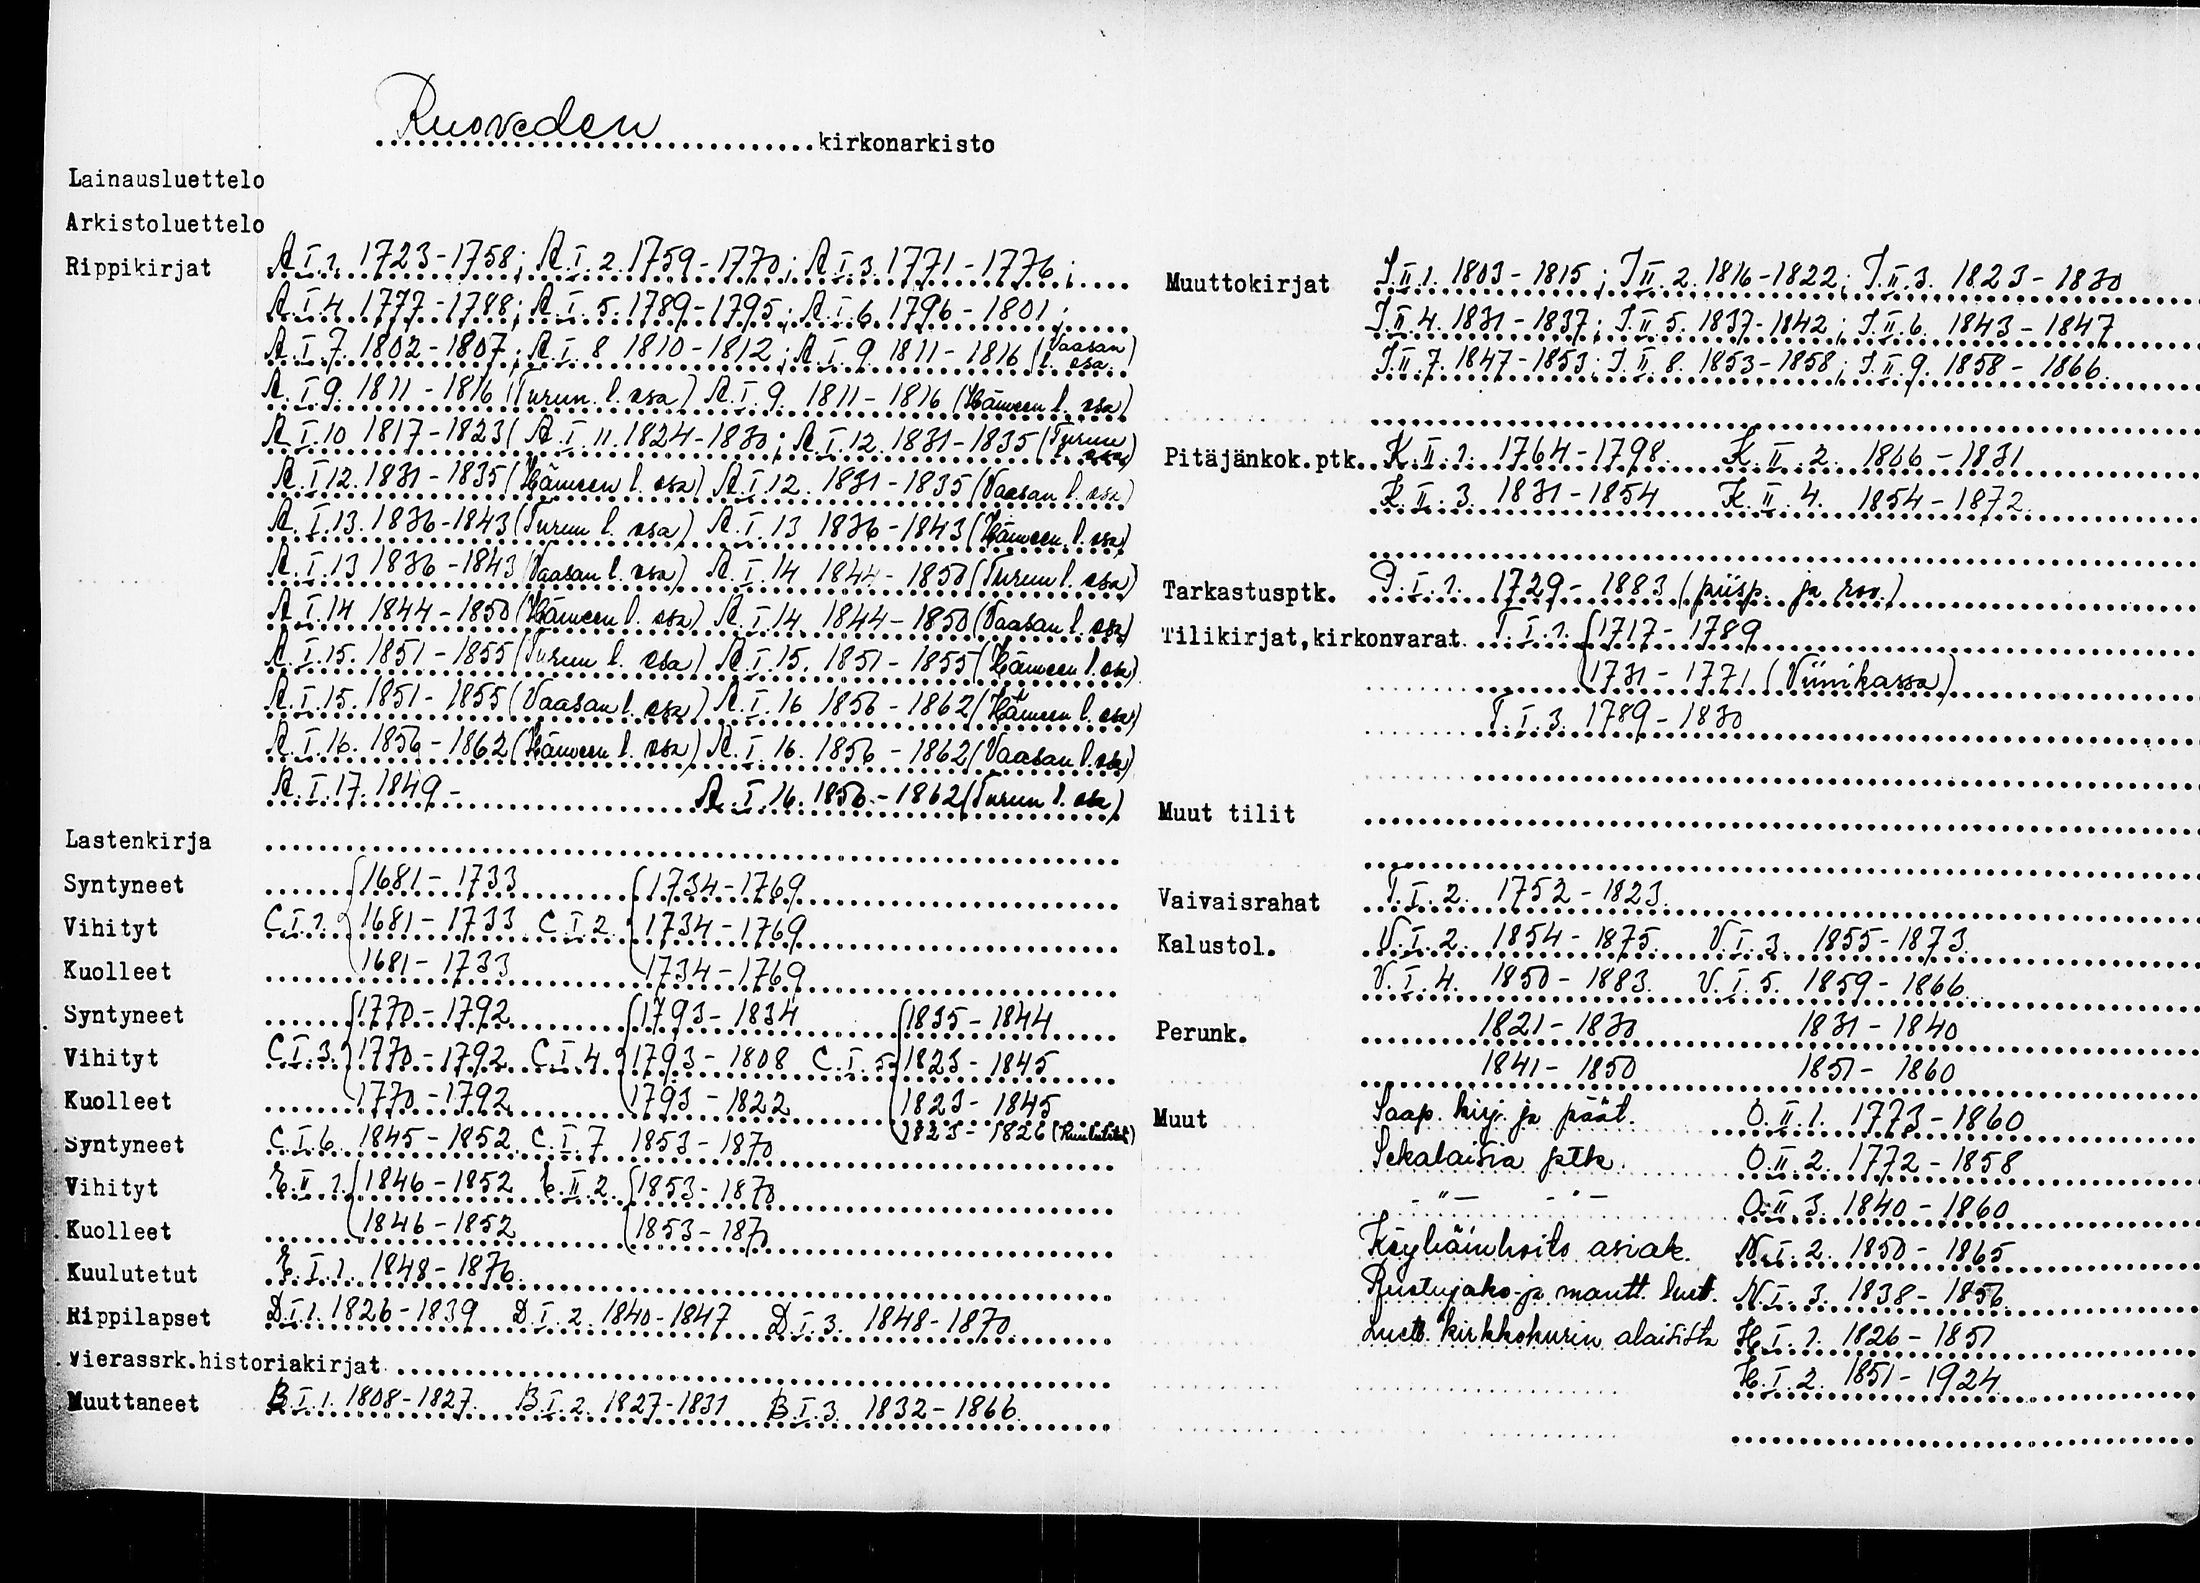 Ruoveden kirkonarkisto
Lainausluettelo
Arkistoluettelo
Rippikirjat A.I.1. 1723-1758; A.I.2. 1759-1770; A.I.3. 1771-1776;
A.I.4. 1777-1788; A.I.5. 1789-1795; A.I.6. 1796-1801;
A.I.7. 1802-1807; A.I.8 1810-1812; A.I.9. 1811-1816 (Vaasan l. osa)
A.I.9. 1811-1816 (Turun l. osa) A.I.9. 1811-1816 (Hämeen l. osa)
A.I.10 1817-1823( A.I.11. 1824-1830; A.I.12. 1831-1835 (Turun osa)
A.I.12. 1831-1835 (Hämeen l. osa) A.I.12. 1831-1835 (Vaasan l. osa)
A.I.13. 1836-1843 (Turun l. osa) A.I.13 1836-1843 (Hämeen l. osa)
A.I.13 1836-1843 (Vaasan l. osa) A.I.14 1844-1850 (Turun l. osa)
A.I.14 1844-1850 (Hämeen l. osa) A.I.14 1844-1850 (Vaasan l. osa)
A.I.15. 1851-1855 (Turun l. osa) A.I.15. 1851-1855 (Hämeen l. osa)
A.I.15. 1851-1855 (Vaasan l. osa) A.I.16 1856-1862 (Hämeen l. osa)
A.I.16. 1856-1862 (Hämeen l. osa) A.I.16. 1856-1862 (Vaasan l. osa)
A.I.17. 1849- A.I.16. 1856-1862 (Turun l. osa)
Lastenkirja
Syntyneet 1681-1733 1734-1769
Vihityt C.I.1. 1681-1733 C.I.2. 1734-1769
Kuolleet 1681-1733 1734-1769
Syntyneet 1770-1792 1793-1834 1835-1844
Vihityt C.I.3. 1770-1792 C.I.4. 1793-1808 C.I.5. 1823-1845
Kuolleet 1770-1792 1793-1822 1823-1845
1823-1826 (Kuulutetut)
Syntyneet C.I.6. 1845-1852. C.I.7 1853-1870
Vihityt E.II.1. 1846-1852 E.II.2. 1853-1870
Kuolleet 1846-1852 1853-187
Kuulutetut E.I.1. 1848-1876.
Rippilapset D.I.1. 1826-1839 D.I.2. 1840-1847 D.I.3. 1848-1870.
Vierassrk.historiakirjat
Muuttaneet B.I.1. 1808-1827. B.I.2. 1827-1831 B.I.3. 1832-1866.
Muuttokirjat J.II.1. 1803-1815; J.II.2. 1816-1822; J.II.3. 1823-1830
J.II.4. 1831-1837; J.II.5. 1837-1842; J.II.6. 1843-1847
J.II.7. 1847-1853; J.II.8. 1853-1858; J.II.9. 1858-1866.
Pitäjänkok.ptk. K.II.1. 1764-1798. K.II.2. 1806-1831
K.II.3. 1831-1854 K.II.4. 1854-1872.
Tarkastusptk. P.I.1. 1729-1883 (piisp. ja rov.)
Tilikirjat,kirkonvarat T.I.1. 1717-1789
1731-1771 (Viinikassa)
T.I.3. 1789-1830
Muut tilit
Vaivaisrahat T.I.2. 1752-1823.
Kalustol. V.I.2. 1854-1875. V.I.3. 1855-1873.
V.I.4. 1850-1883. V.I.5. 1859-1866.
Perunk. 1821-1830 1831-1840
1841-1850 1851-1860
Muut Saap. kirj. ja päät. O.II.1. 1773-1860
Sekalaisia ptk. O.II.2. 1772-1858
-"- -"- O.II.3. 1840-1860
Köyhäinhoito asiak. N.I.2. 1850-1865
Ruotujako- ja mantt. luet. N.I.3. 1838-1856.
Luett. kirkkokurin alaisista H.I.1. 1826-1851
H.I.2. 1851-1924.